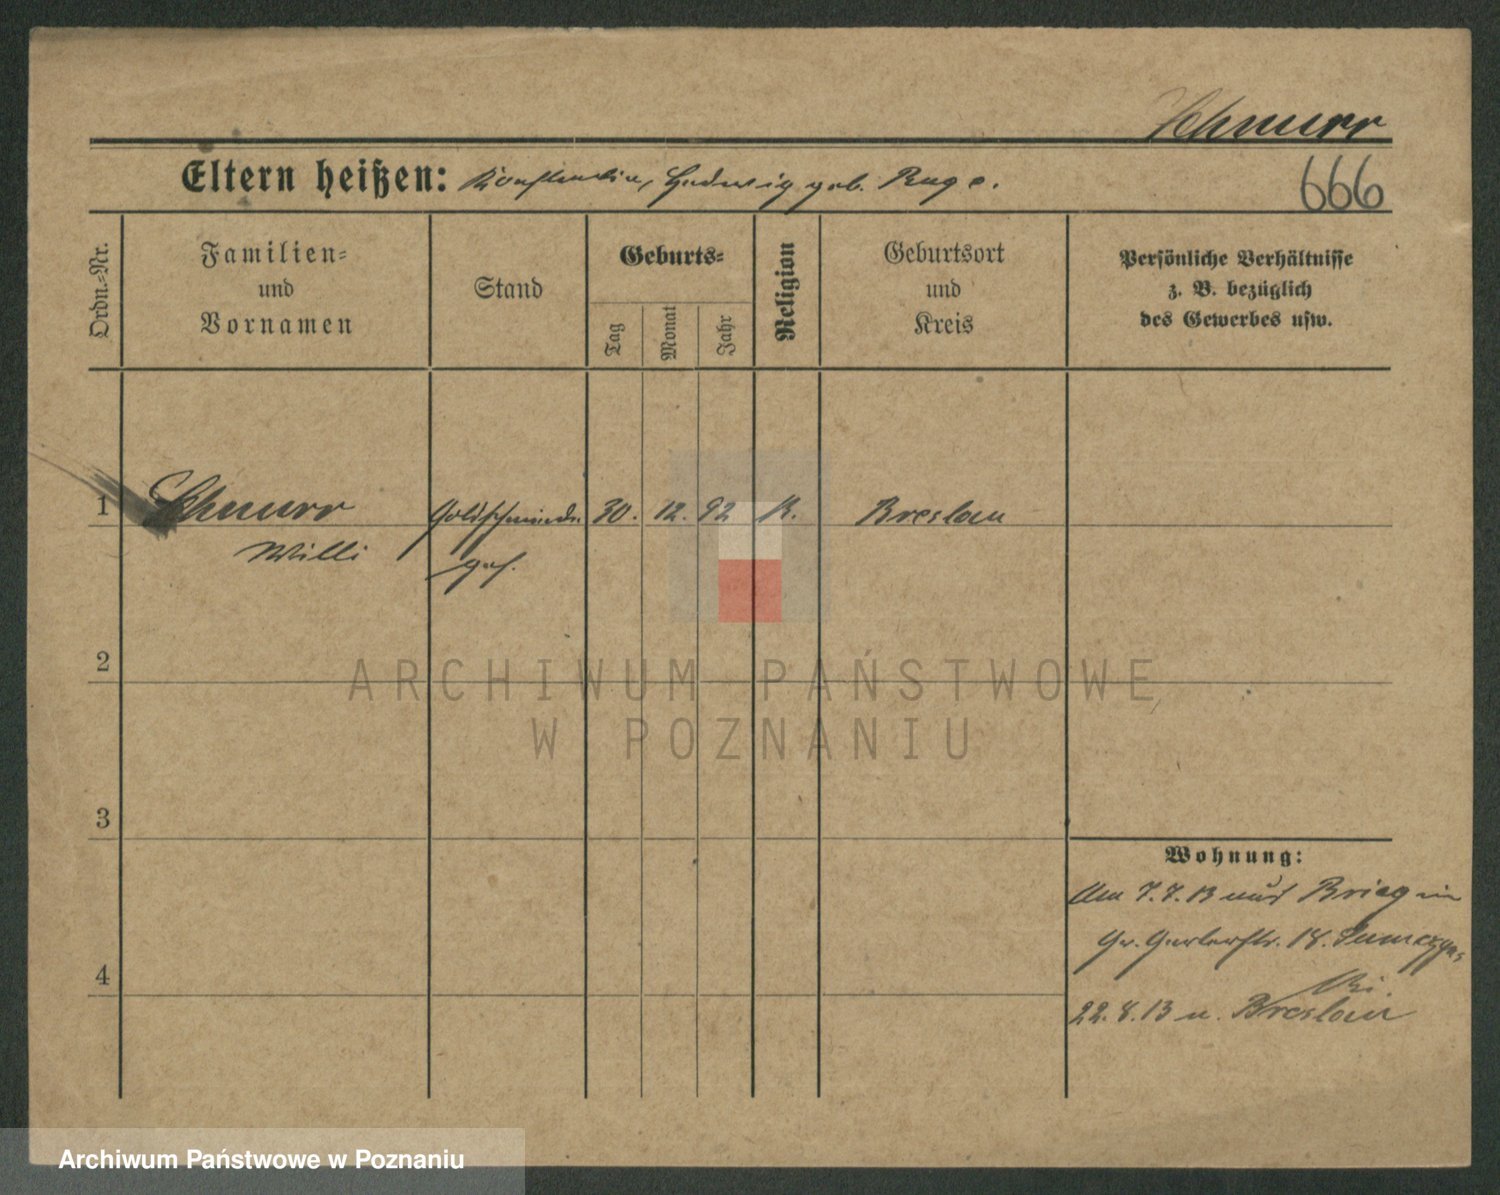 Schnurr
Eltern heißen: Konstantin, Hedwig geb. Ruge.
666
Ordn.-Nr.
Familien-
und
Vornamen
Stand
Geburts-
Tag
Monat
Jahr
Religion
Geburtsort
und
Kreis
Persönliche Verhältnisse
z. B. bezüglich
des Gewerbes usw.
1 Schnurr Goldschmiede 30. 12. 92 K. Breslau
Willi
2
ARCHIWUM PAŃSTWOWE
W POZNANIU
3
Wohnung:
Am 7.7.13 aus Brieg in
Gr. Gerberstr. 18.
4
22.8.13 n. Breslau
Archiwum Państwowe w Poznaniu